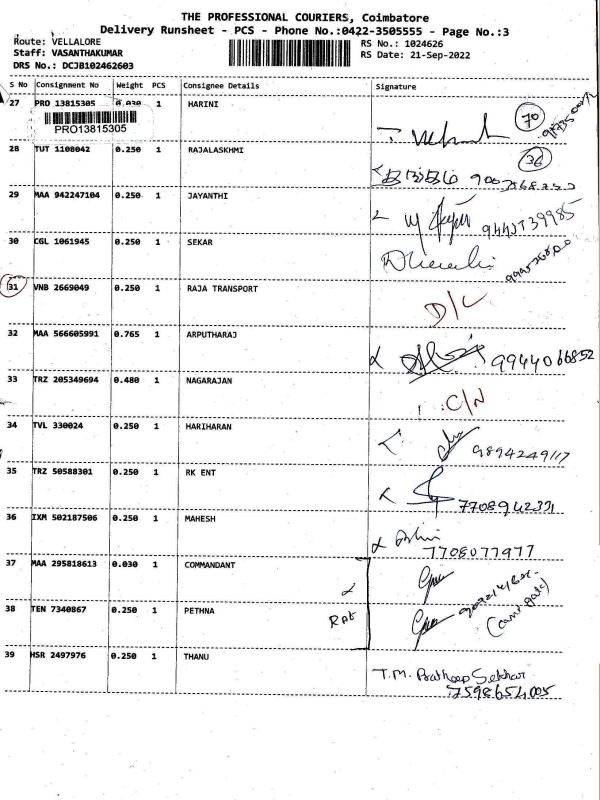 THE PROFESSIONAL COURIERS, Coimbatore
Delivery Runsheet - PCS - Phone No.:0422-3505555 - Page No.:3
Route: VELLALORE
Staff: VASANTHAKUMAR
DRS No.: DCJB102462603
RS No.: 1024626
RS Date: 21-Sep-2022
S No Consignment No Weight PCS Consignee Details Signature
27 PRO 13815305 0.030 1 HARINI
PRO13815305
70
28 TUT 1108042 0.250 1 RAJALASKHMI
36
29 MAA 942247104 0.250 1 JAYANTHI
30 CGL 1061945 0.250 1 SEKAR
31 VNB 2669049 0.250 1 RAJA TRANSPORT D/L
32 MAA 566605991 0.765 1 ARPUTHARAJ 9944066852
33 TRZ 205349694 0.480 1 NAGARAJAN C/N
34 TVL 330024 0.250 1 HARIHARAN 9894249117
35 TRZ 50588301 0.250 1 RK ENT 7708942331
36 IXM 502187506 0.250 1 MAHESH 7708077977
37 MAA 295818613 0.030 1 COMMANDANT
38 TEN 7340867 0.250 1 PETHNA
39 HSR 2497976 0.250 1 THANU T.M. Pratheep Sekhar
7598654005